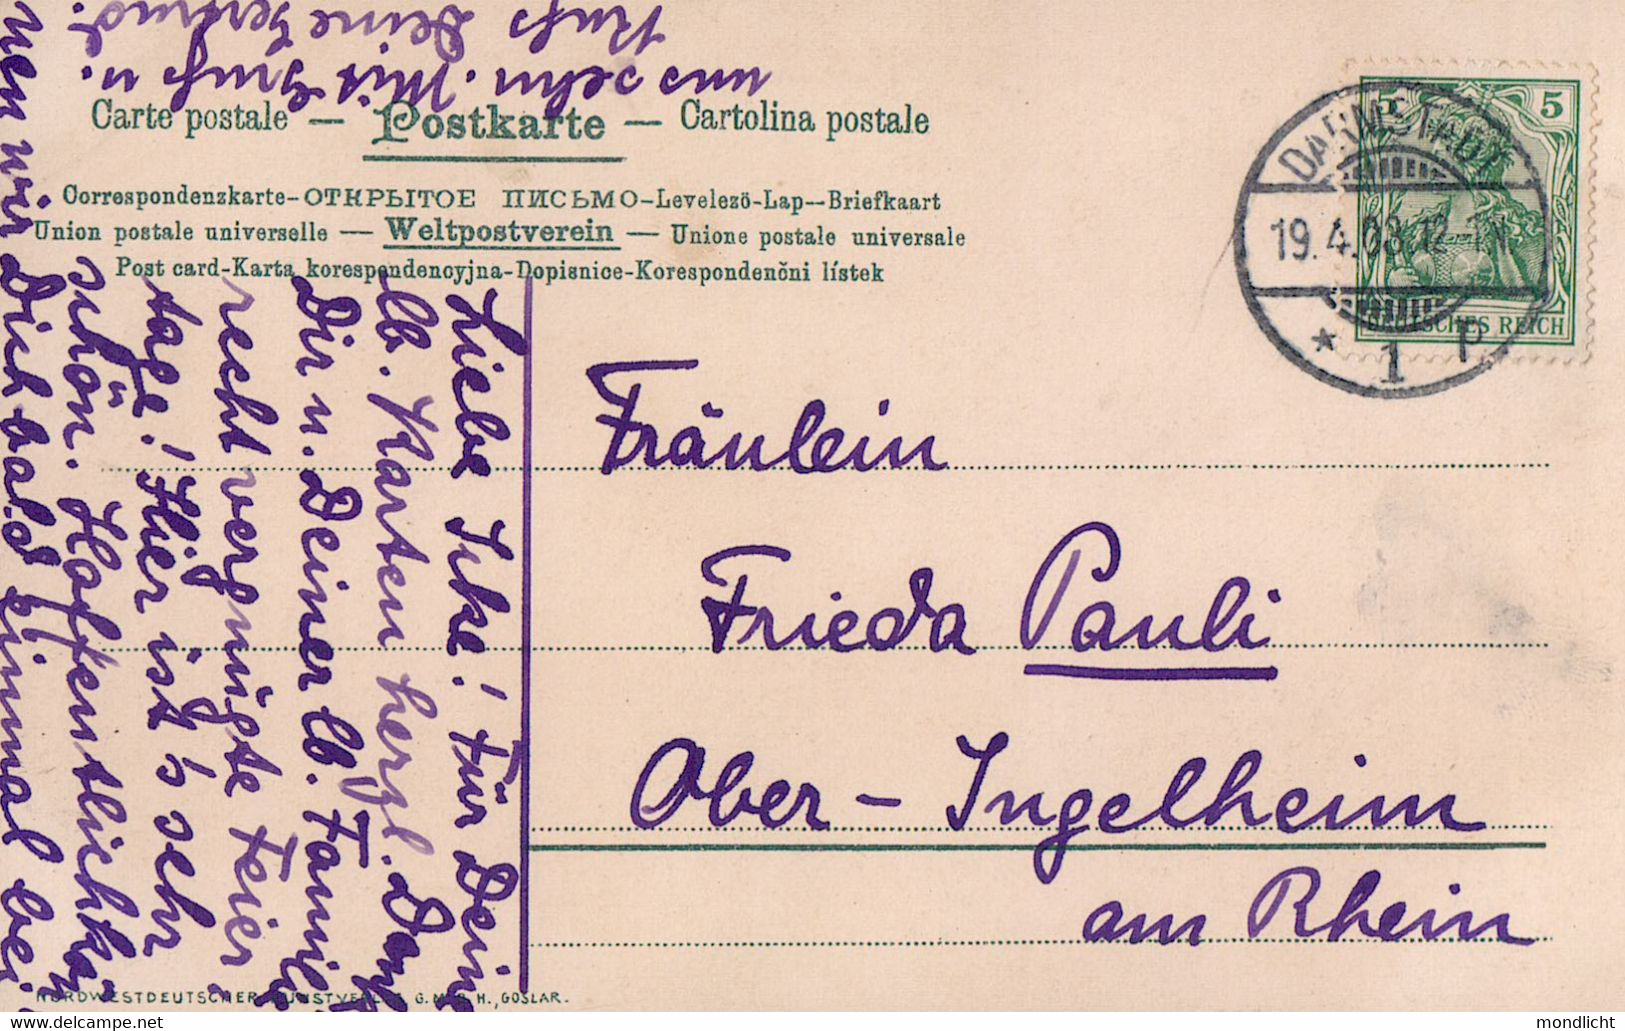 uns sehn. Mit Gruß u.
Kuß Deine
Carte postale — Postkarte — Cartolina postale
Correspondenzkarte-ОТКРЫТОЕ ПИСЬМО-Levelezö-Lap--Briefkaart
Union postale universelle — Weltpostverein — Unione postale universale
Post card-Karta korespondencyjna-Dopisnice-Korespondenční lístek
5 5
DEUTSCHES REICH
DARMSTADT
19.4.08.12-1N
* 1 P
Liebe Ike! Für Deine
lb. Karten herzl. Dank
Dir u. Deiner lb. Familie
recht vergnügte Feier
tage! Hier ist's sehr
schön. Hoffentlich kön
nen wir Dich bald einmal bei
Fräulein
Frieda Pauli
Ober-Ingelheim
am Rhein
NORDWESTDEUTSCHER KUNSTVERLAG, G.M.B.H., GOSLAR.
mondlicht